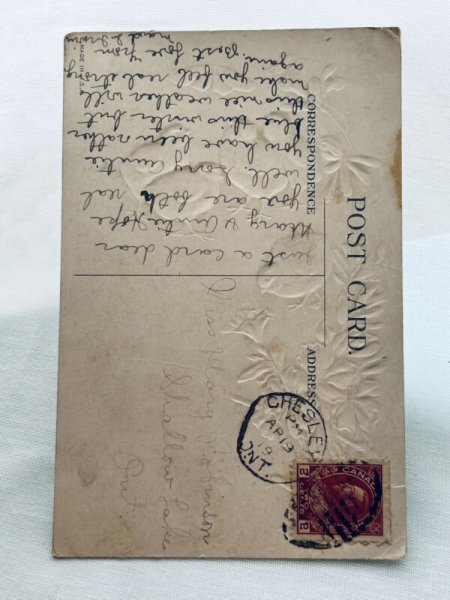 POST CARD.
CORRESPONDENCE
ADDRESS
MADE IN U.S.A.
Just a card dear
Mary & Auntie. Hope
you are both real
well. Sorry Auntie
you have been rather
blue this winter but
this nice weather will
make you feel real strong
again. Best love from
Maud &
Miss Mary Robinson
Shallow Lake
Ont
CHESLEY
PM
AP 13
19
ONT.
CANADA
2 2